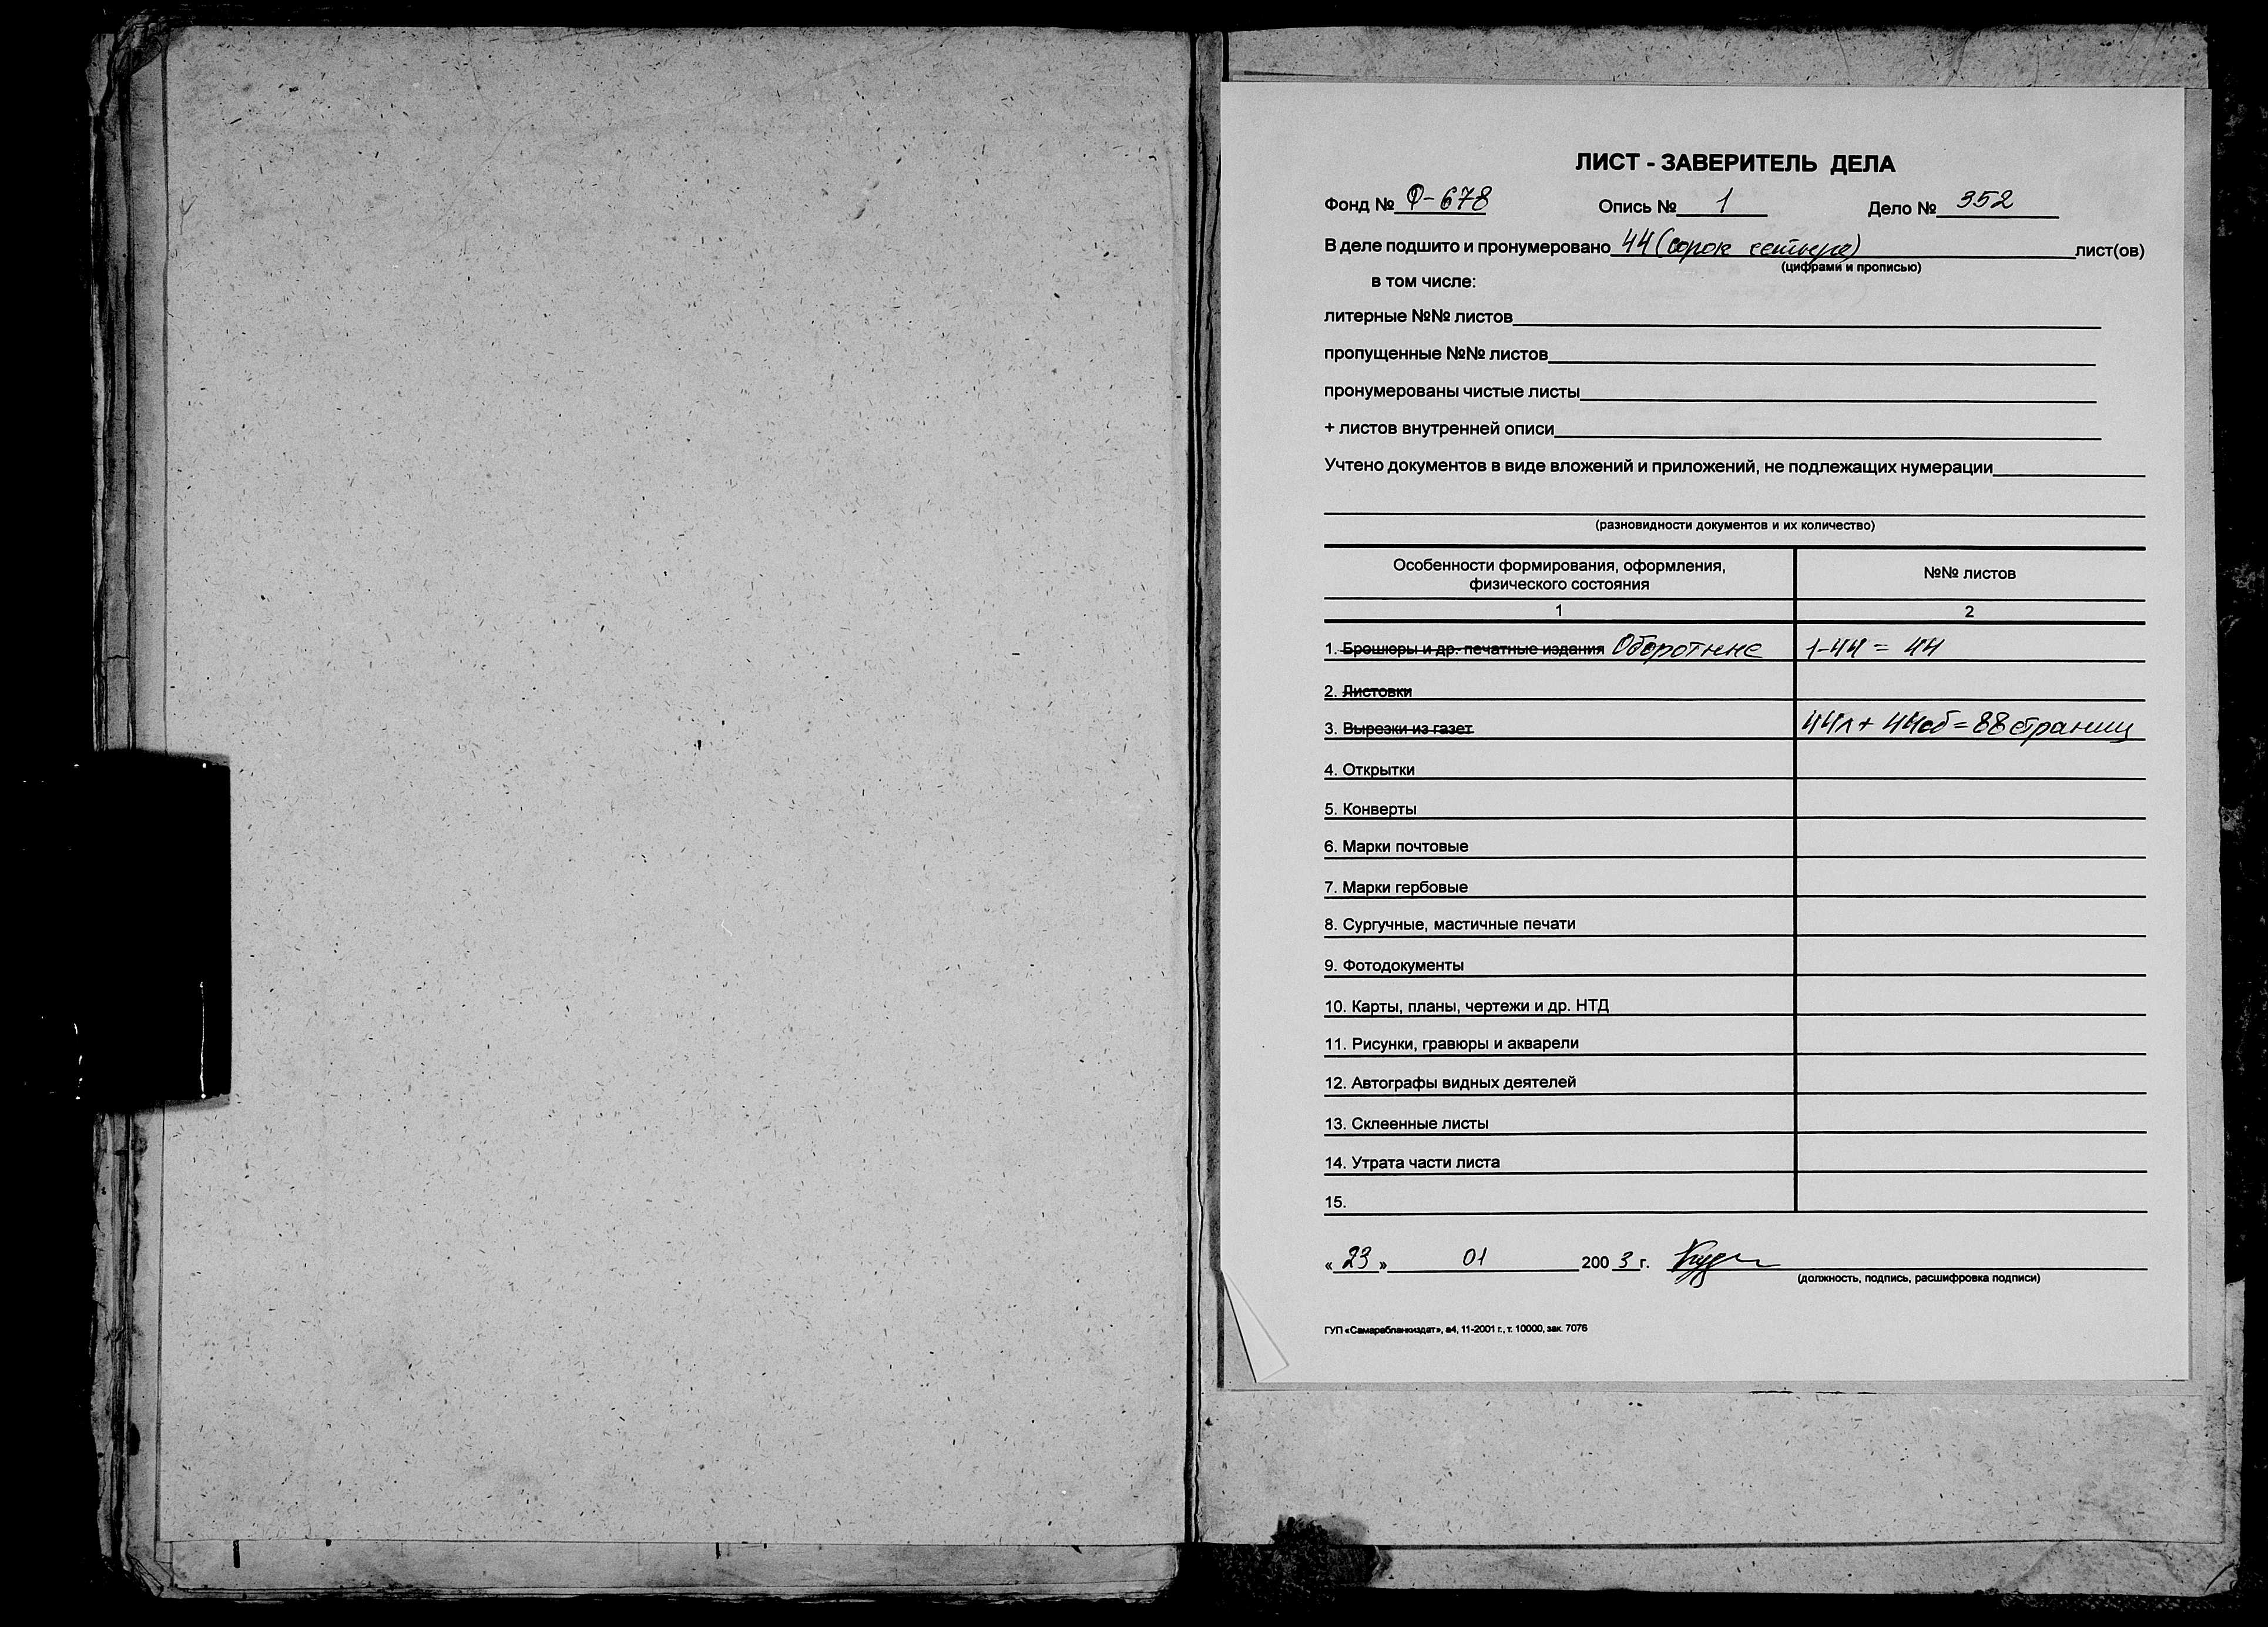 ЛИСТ - ЗАВЕРИТЕЛЬ ДЕЛА
Фонд № Ф-678 Опись № 1 Дело № 352
В деле подшито и пронумеровано 44 (сорок четыре) лист(ов)
(цифрами и прописью)
в том числе:
литерные №№ листов
пропущенные №№ листов
пронумерованы чистые листы
+ листов внутренней описи
Учтено документов в виде вложений и приложений, не подлежащих нумерации
(разновидности документов и их количество)
Особенности формирования, оформления, №№ листов
физического состояния
1 2
1. Брошюры и др. печатные издания Оборотные 1-44 = 44
2. Листовки
3. Вырезки из газет 44л + 44об = 88 страниц
4. Открытки
5. Конверты
6. Марки почтовые
7. Марки гербовые
8. Сургучные, мастичные печати
9. Фотодокументы
10. Карты, планы, чертежи и др. НТД
11. Рисунки, гравюры и акварели
12. Автографы видных деятелей
13. Склеенные листы
14. Утрата части листа
15.
« 23 » 01 200 3 г.
(должность, подпись, расшифровка подписи)
ГУП «Самарабланкиздат», а4, 11-2001 г., т. 10000, зак. 7076